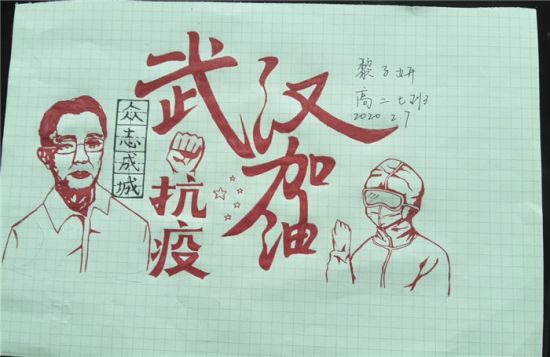 武汉
加油
众志成城
抗疫
黎子妍
高二七班
2020.2.7